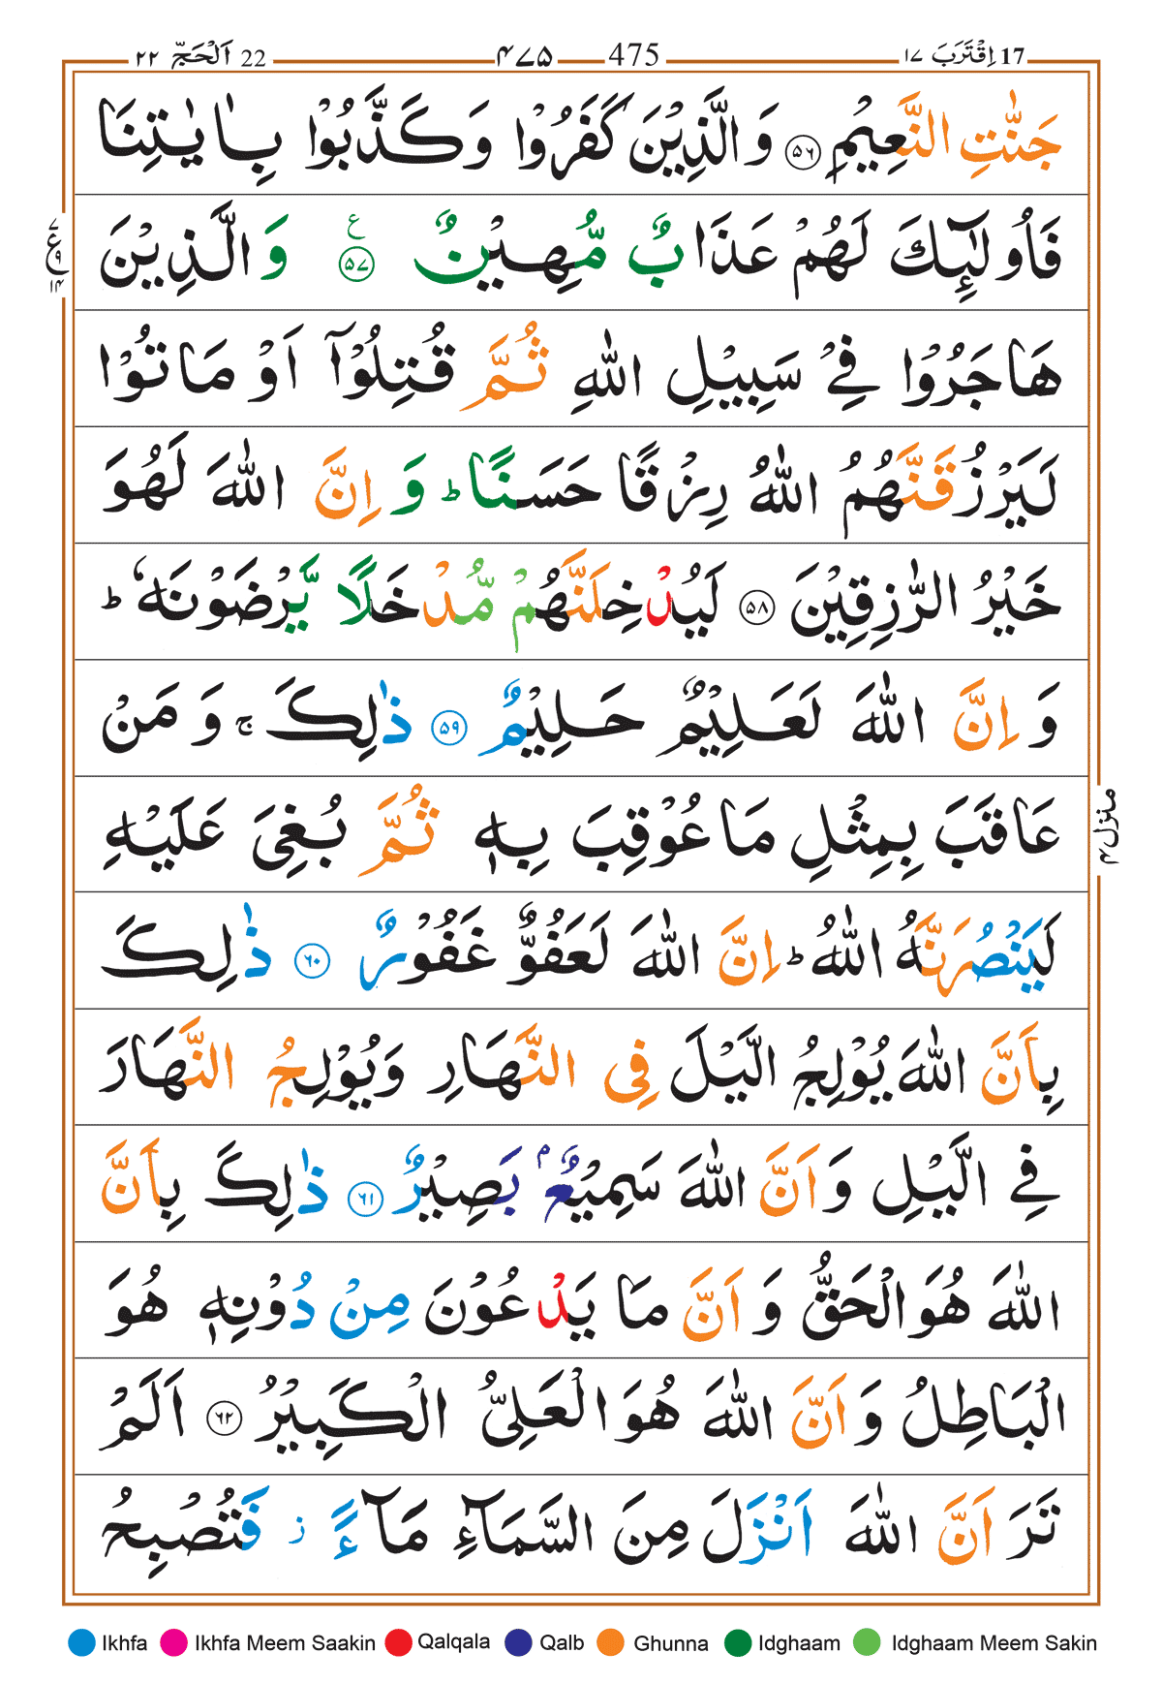 17 اِقْتَرَبَ ١٧
475 ۴۷۵
22 اَلْحَجّ ٢٢
جَنّٰتِ النَّعِيْمِ ﴿۵۶﴾ وَالَّذِيْنَ كَفَرُوْا وَكَذَّبُوْا بِاٰيٰتِنَا
فَاُولٰٓئِكَ لَهُمْ عَذَابٌ مُّهِيْنٌ ﴿۵۷﴾ ع وَالَّذِيْنَ
هَاجَرُوْا فِيْ سَبِيْلِ اللّٰهِ ثُمَّ قُتِلُوْٓا اَوْ مَاتُوْا
لَيَرْزُقَنَّهُمُ اللّٰهُ رِزْقًا حَسَنًا ؕ وَ اِنَّ اللّٰهَ لَهُوَ
خَيْرُ الرّٰزِقِيْنَ ﴿۵۸﴾ لَيُدْخِلَنَّهُمْ مُّدْخَلًا يَّرْضَوْنَهٗ ؕ
وَ اِنَّ اللّٰهَ لَعَلِيْمٌ حَلِيْمٌ ﴿۵۹﴾ ذٰلِكَ ۚ وَ مَنْ
عَاقَبَ بِمِثْلِ مَا عُوْقِبَ بِهٖ ثُمَّ بُغِيَ عَلَيْهِ
لَيَنْصُرَنَّهُ اللّٰهُ ؕ اِنَّ اللّٰهَ لَعَفُوٌّ غَفُوْرٌ ﴿۶۰﴾ ذٰلِكَ
بِاَنَّ اللّٰهَ يُوْلِجُ الَّيْلَ فِي النَّهَارِ وَيُوْلِجُ النَّهَارَ
فِي الَّيْلِ وَ اَنَّ اللّٰهَ سَمِيْعٌۢ بَصِيْرٌ ﴿۶۱﴾ ذٰلِكَ بِاَنَّ
اللّٰهَ هُوَ الْحَقُّ وَ اَنَّ مَا يَدْعُوْنَ مِنْ دُوْنِهٖ هُوَ
الْبَاطِلُ وَ اَنَّ اللّٰهَ هُوَ الْعَلِيُّ الْكَبِيْرُ ﴿۶۲﴾ اَلَمْ
تَرَ اَنَّ اللّٰهَ اَنْزَلَ مِنَ السَّمَآءِ مَآءً ز فَتُصْبِحُ
٧ ع ٩ ١۴
منزل ۴
Ikhfa Ikhfa Meem Saakin Qalqala Qalb Ghunna Idghaam Idghaam Meem Sakin